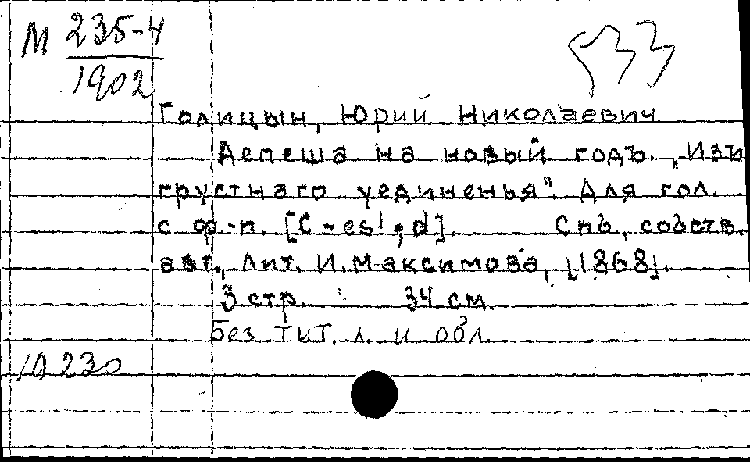 М 235-4
1902
533
Голицын, Юрий Николаевич
Депеша на новый годъ. „Изъ
грустнаго уединенья". Для гол.
с ф.-п. [C - es¹; d]. Спб, собств.
авт., Лит. И. Максимова, [1868].
3 стр. 34 см.
Без тит. л. и обл.
10230